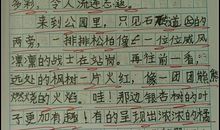 多彩，令人流连忘返。
来到公园里，只见石道的
两旁，一排排松柏像一位位威风
凛凛的战士在站岗。再往前一看，
远处的枫树一片火红，像一团团熊
燃烧的火焰。哇！那边银杏树的叶
子更加有趣！有的呈现出浓浓的橘